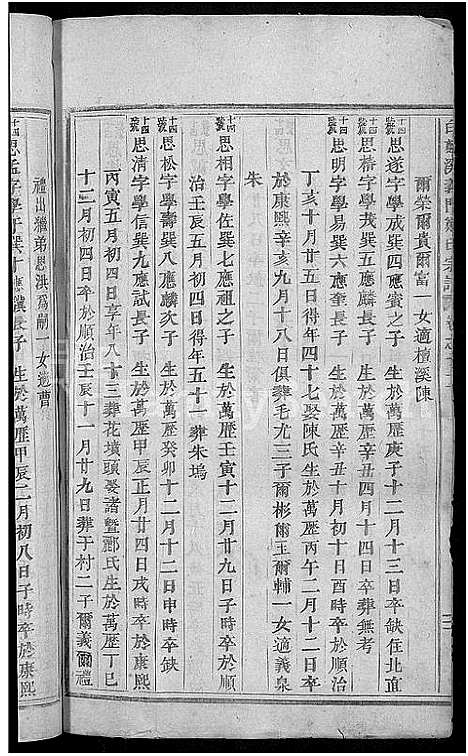 爾榮爾貴爾富一女適檀溪陳
十四號思遂字學巽四應賓之子 生於萬歷庚子十二月十三日卒缺住北直
十四號思椿字學巽六 生於萬歷辛丑年正月廿四日卒葬無考
十四號思明字學易巽六應 長子 生於萬歷辛丑十月初十日酉時卒於順治
丁亥十月廿五日得年四十七娶陳氏生於萬歷丙午二月十二日卒
於康熙辛亥九月十八日俱葬毛尤三子爾彬爾玉爾輔一女適義泉
朱
十四號思相字學佐巽七應祖之子 生於萬歷壬寅十二月廿九日子時卒於順
治壬辰五月初四日得年五十一葬朱塢
十四號思松字學壽巽九應麟次子 生於萬歷癸卯十二月十二日申時卒缺
十四號思清字學 巽九應試長子 生於萬歷甲辰正月廿四日戌時卒於康熙
丙寅五月初四日享年八十三葬花墳頭娶諸暨酈氏生於萬歷丁巳
十二月初四日卒於順治壬辰十一月廿九日葬于村二子爾義爾禮
禮出繼弟思洪爲嗣一女適曹
十四思孟字學于巽十應 長子 生於萬歷甲辰二月初八日子時卒於康熙